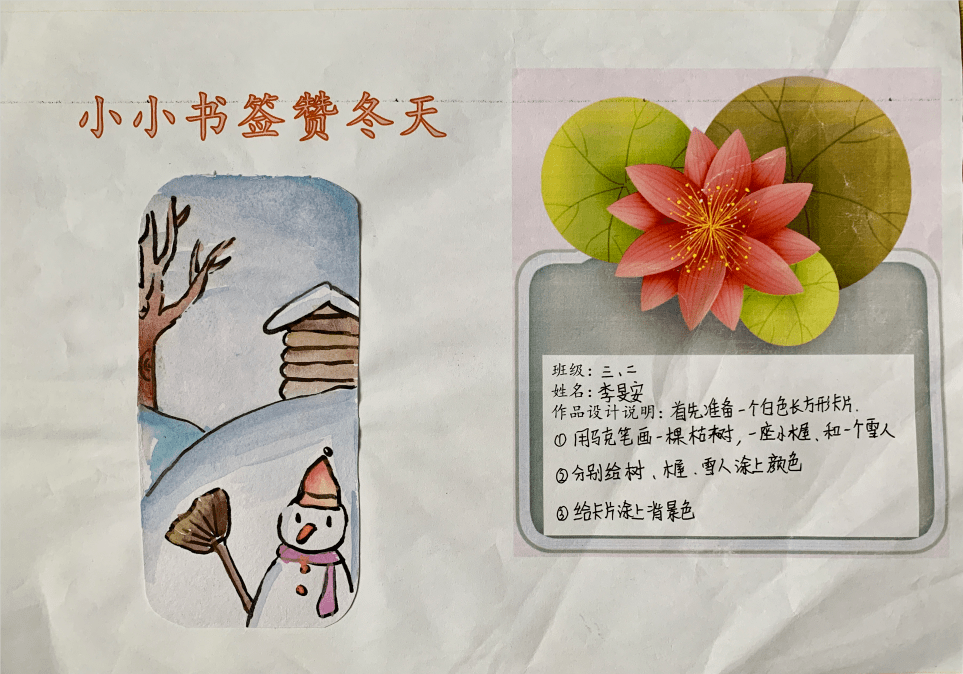 小小书签赞冬天
班级：三、二
姓名：李旻安
作品设计说明：首先准备一个白色长方形卡片.
①用马克笔画一棵枯树，一座小木屋、和一个雪人
②分别给树、木屋、雪人涂上颜色
③给卡片涂上背景色